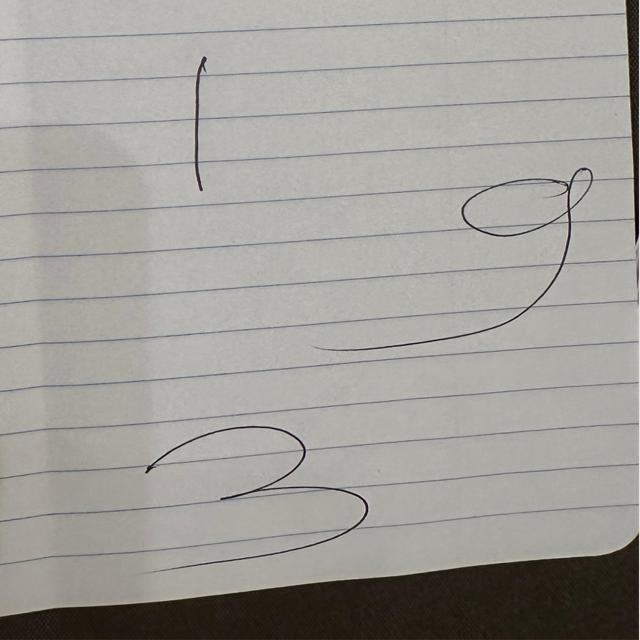 1
9
3